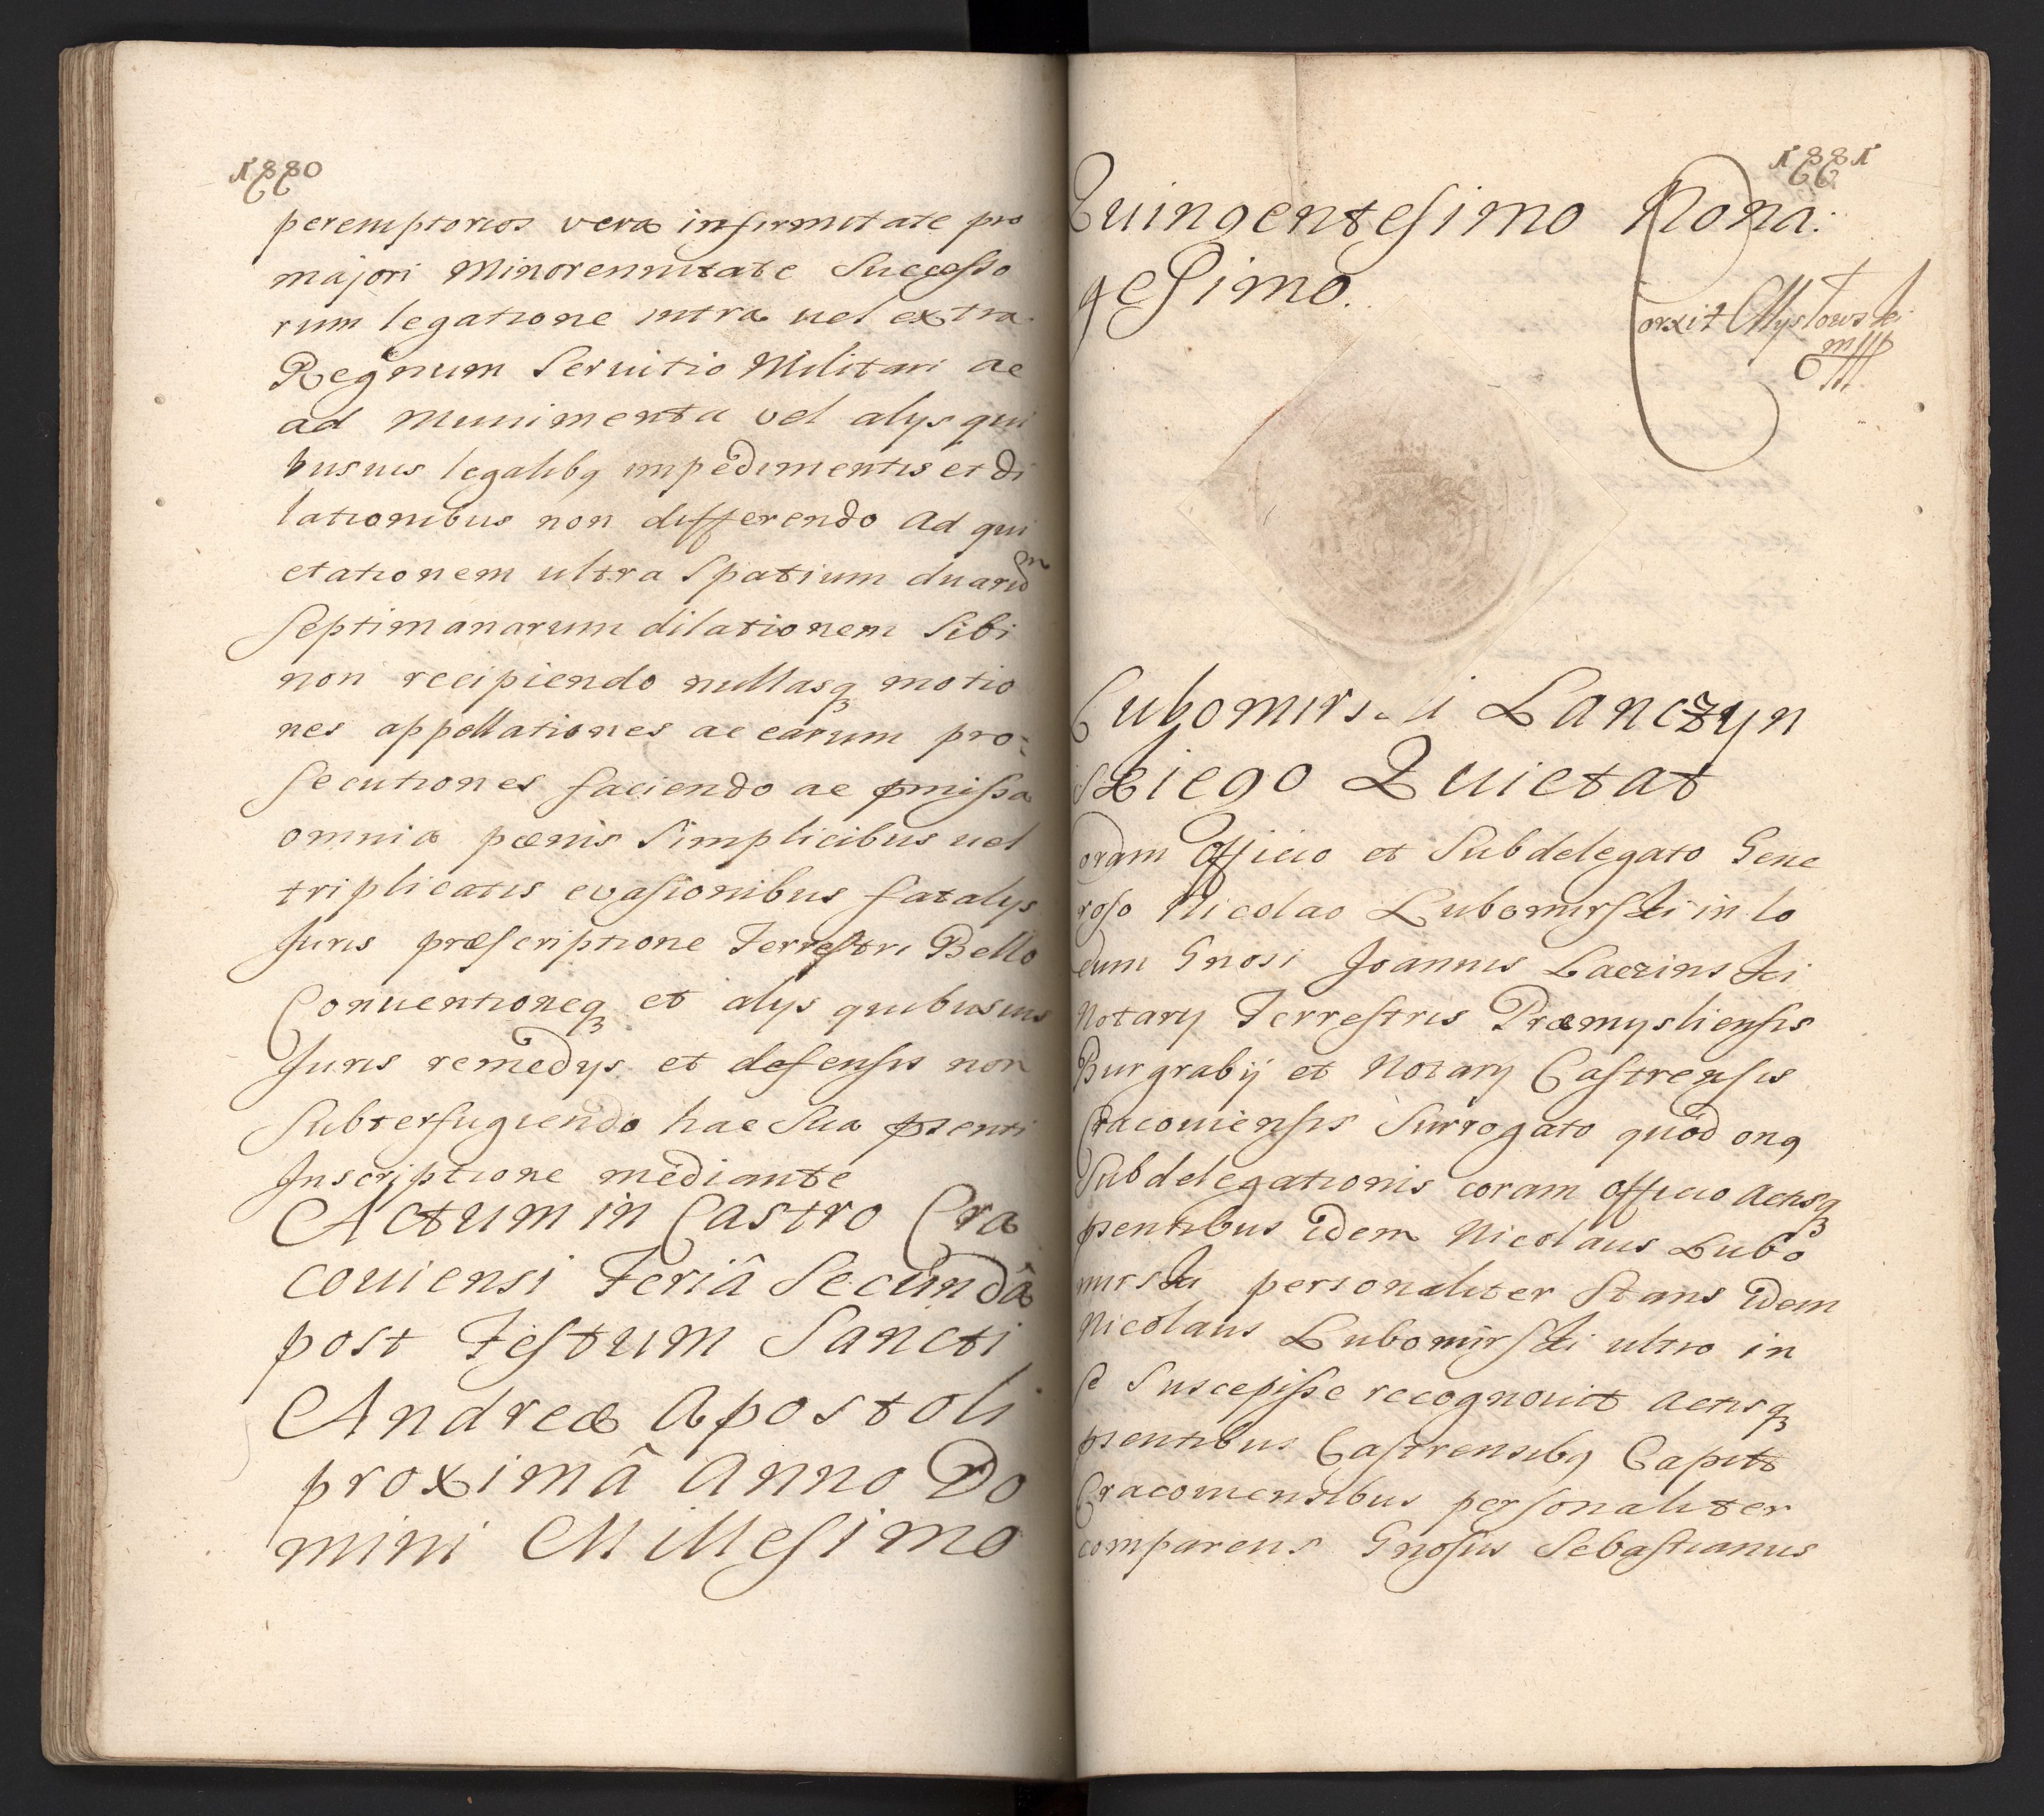 1880
peremptorios vera infirmitate pro
majori Minorennitate Successo
rum legatione intra uel extra
Regnum Seruitio Militari ac
ad Munimenta vel alys qui
busuis legalibq impedimentis et di
lationibus non differendo ad qui
etationem ultra Spatium duarum
Septimanarum dilationem Sibi
non recipiendo nullasq motio
nes appellationes ac earum pro:
secutiones faciendo ac pmissa
omnia pœnis Simplicibus uel
triplicatis evasionibus fatalys
Juris præscriptione Terrestri Bello
Conuentioneq et alys quibusuis
Juris remedys et defensis non
Subterfugiendo hac Sua psenti
Inscriptione mediante
Actum in Castro Cra
couiensi Feriâ Secundâ
post Festum Sancti
Andreæ Apostoli
proximâ Anno Do
mini Millesimo
1881
Quingentesimo Nona:
gesimo.
orxit Mysłowski
mpp
Lubomirski Lanczyn
skiego Quietat
oram Officio et Subdelegato Gene
roso Nicolao Lubomirski in lo
cum Gnosi Joannis Łaczinski
Notary Terrestris Præmysliensis
Burgrabij et Notary Castrensis
Cracouiensis Surrogato quod onq
Subdelegationis coram officio Actisq
psentibus idem Nicolaus Lubo
mirski personaliter Stans idem
Nicolaus Lubomirski ultro in
se Suscepisse recognouit Actisq
psentibus Castrensibq Capitt
Cracouiensibus personaliter
comparens Gnosus Sebastianus